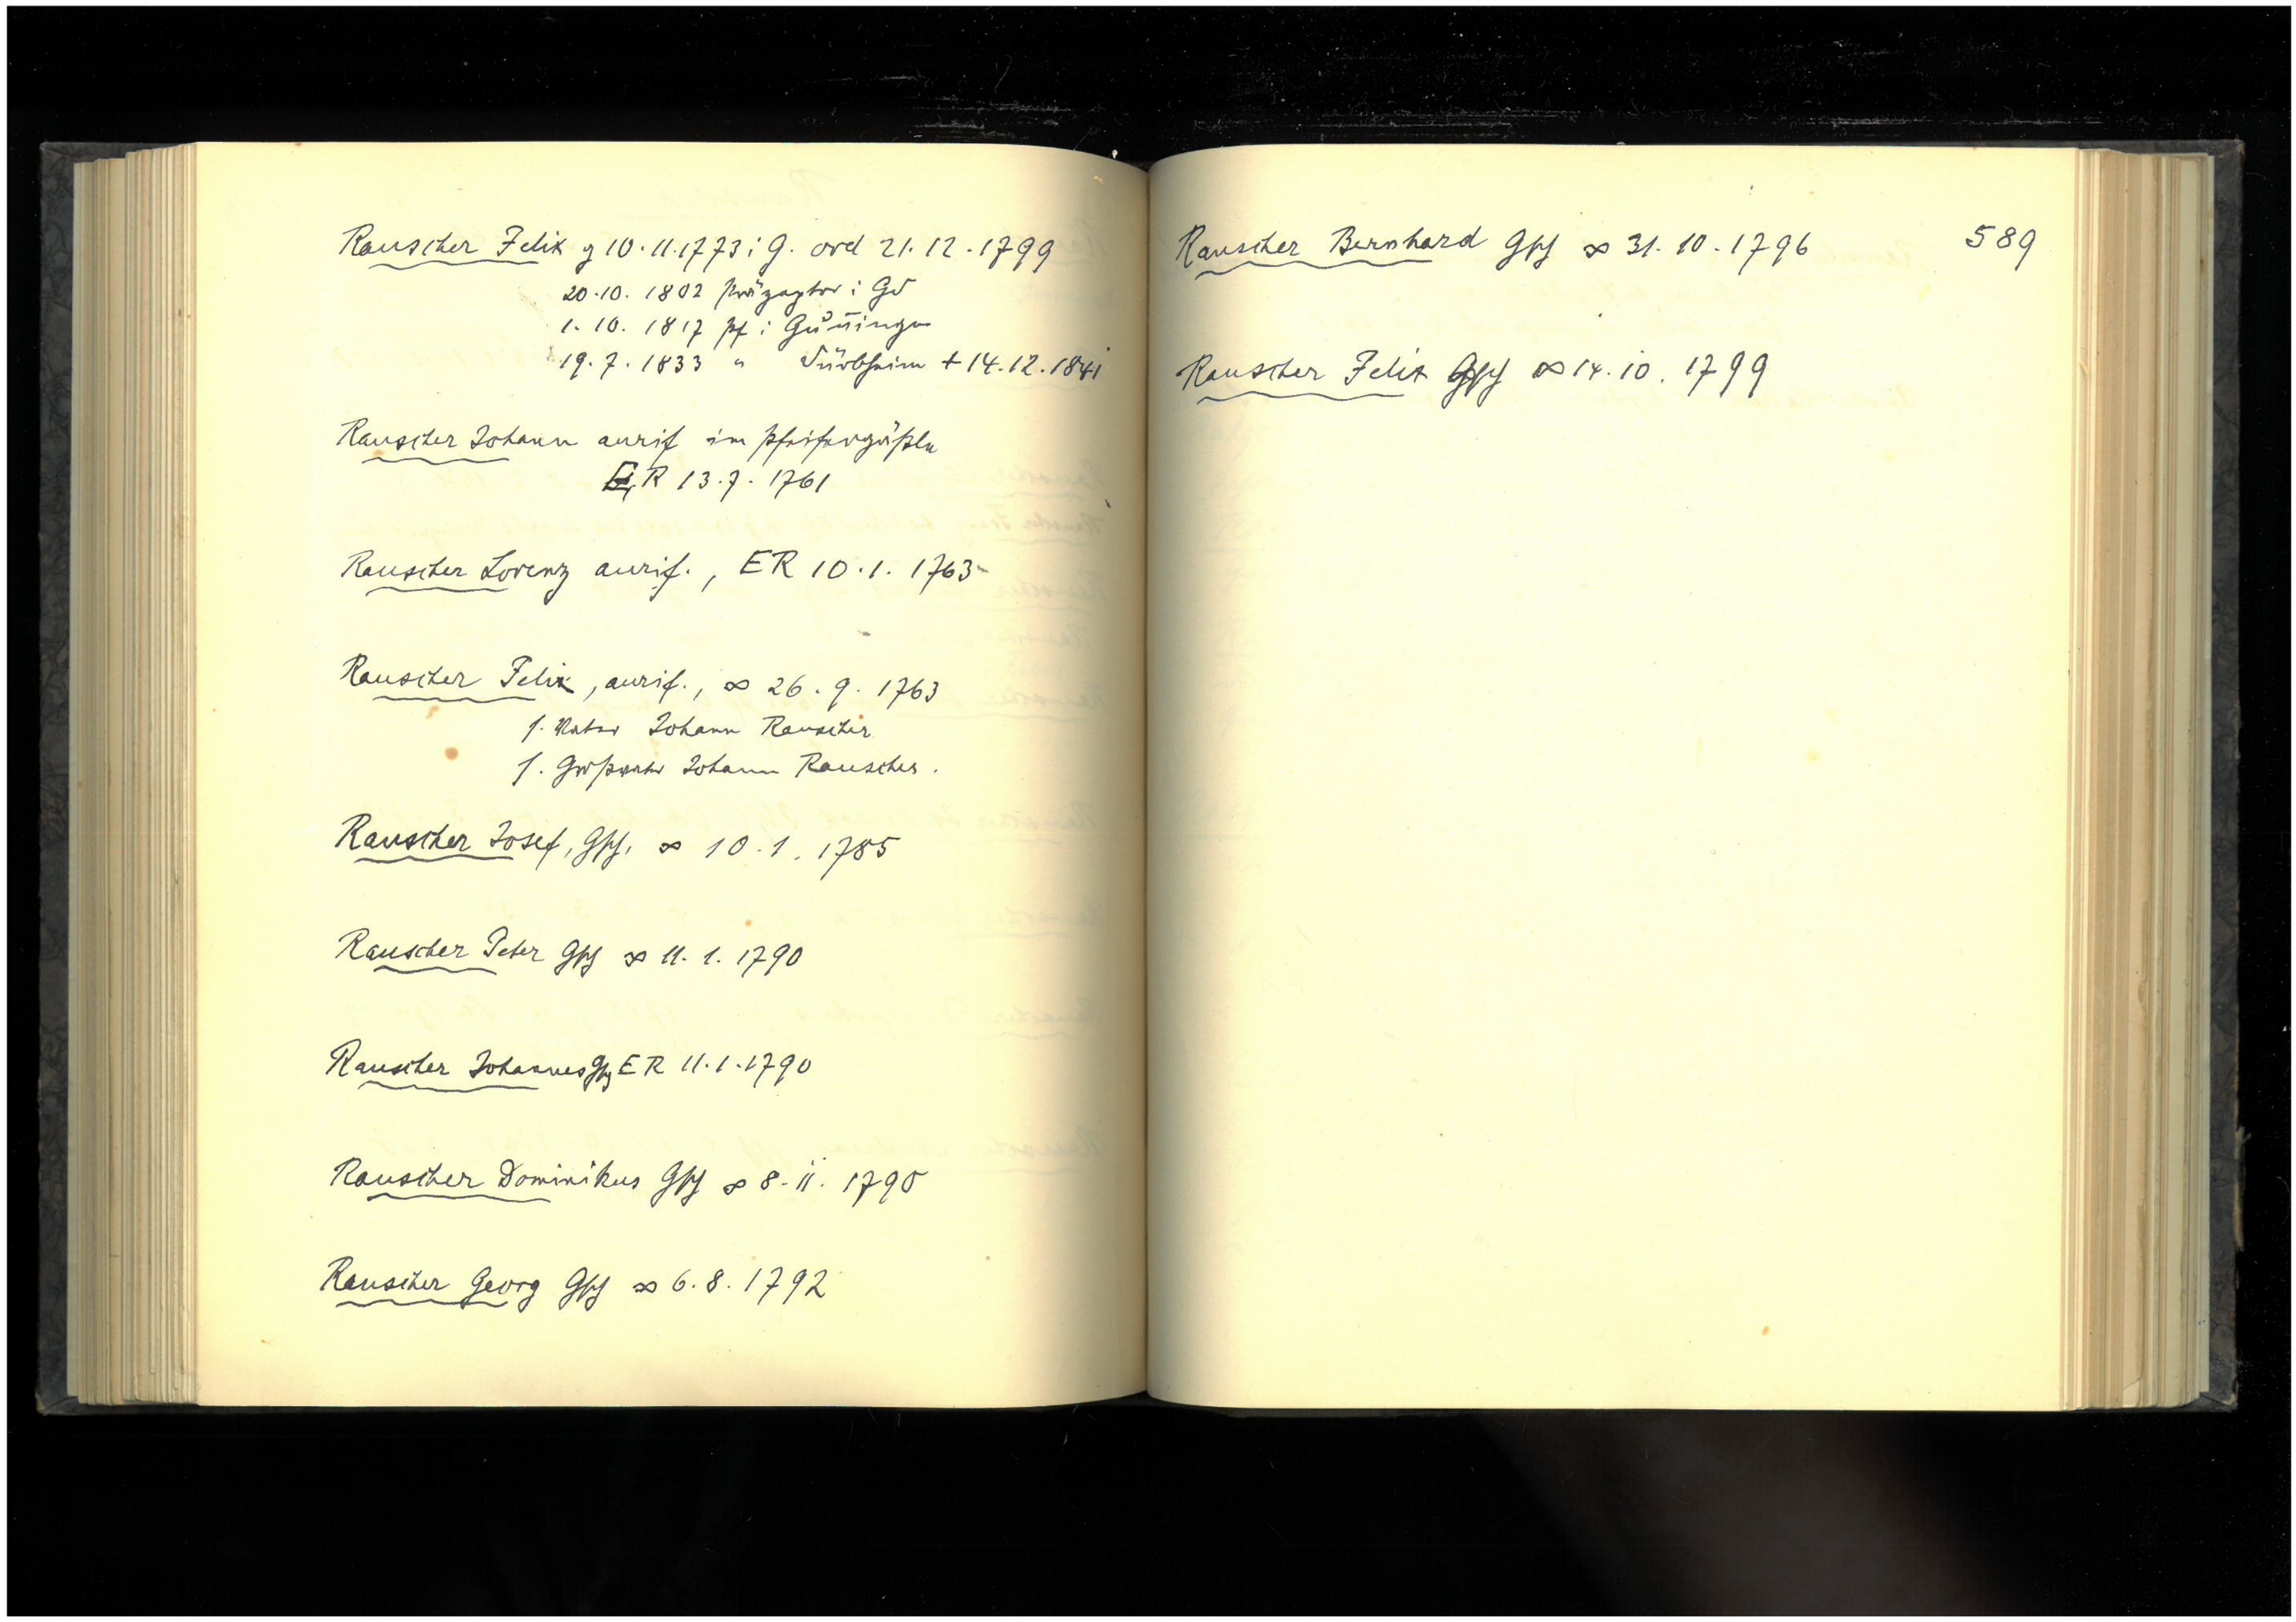 Rauscher Felix g 10.11.1773 i G. ord 21.12.1799
20.10.1802 Präzeptor i Gd
1.10.1817 Pf i Gunningen
19.7.1833 " Dürbheim + 14.12.1841
Rauscher Johann aurif im Pfeifergäßle
ER 13.7.1761
Rauscher Lorenz aurif., ER 10.1.1763
Rauscher Felix, aurif., ∞ 26.9.1763
s. Vater Johann Rauscher
s. Großvater Johann Rauscher.
Rauscher Josef, Gsch, ∞ 10.1.1785
Rauscher Peter Gsch ∞ 11.1.1790
Rauscher Johannes Gsch ER 11.1.1790
Rauscher Dominikus Gsch ∞ 8.11.1790
Rauscher Georg Gsch ∞ 6.8.1792
Rauscher Bernhard Gsch ∞ 31.10.1796
589
Rauscher Felix Gsch ∞ 14.10.1799